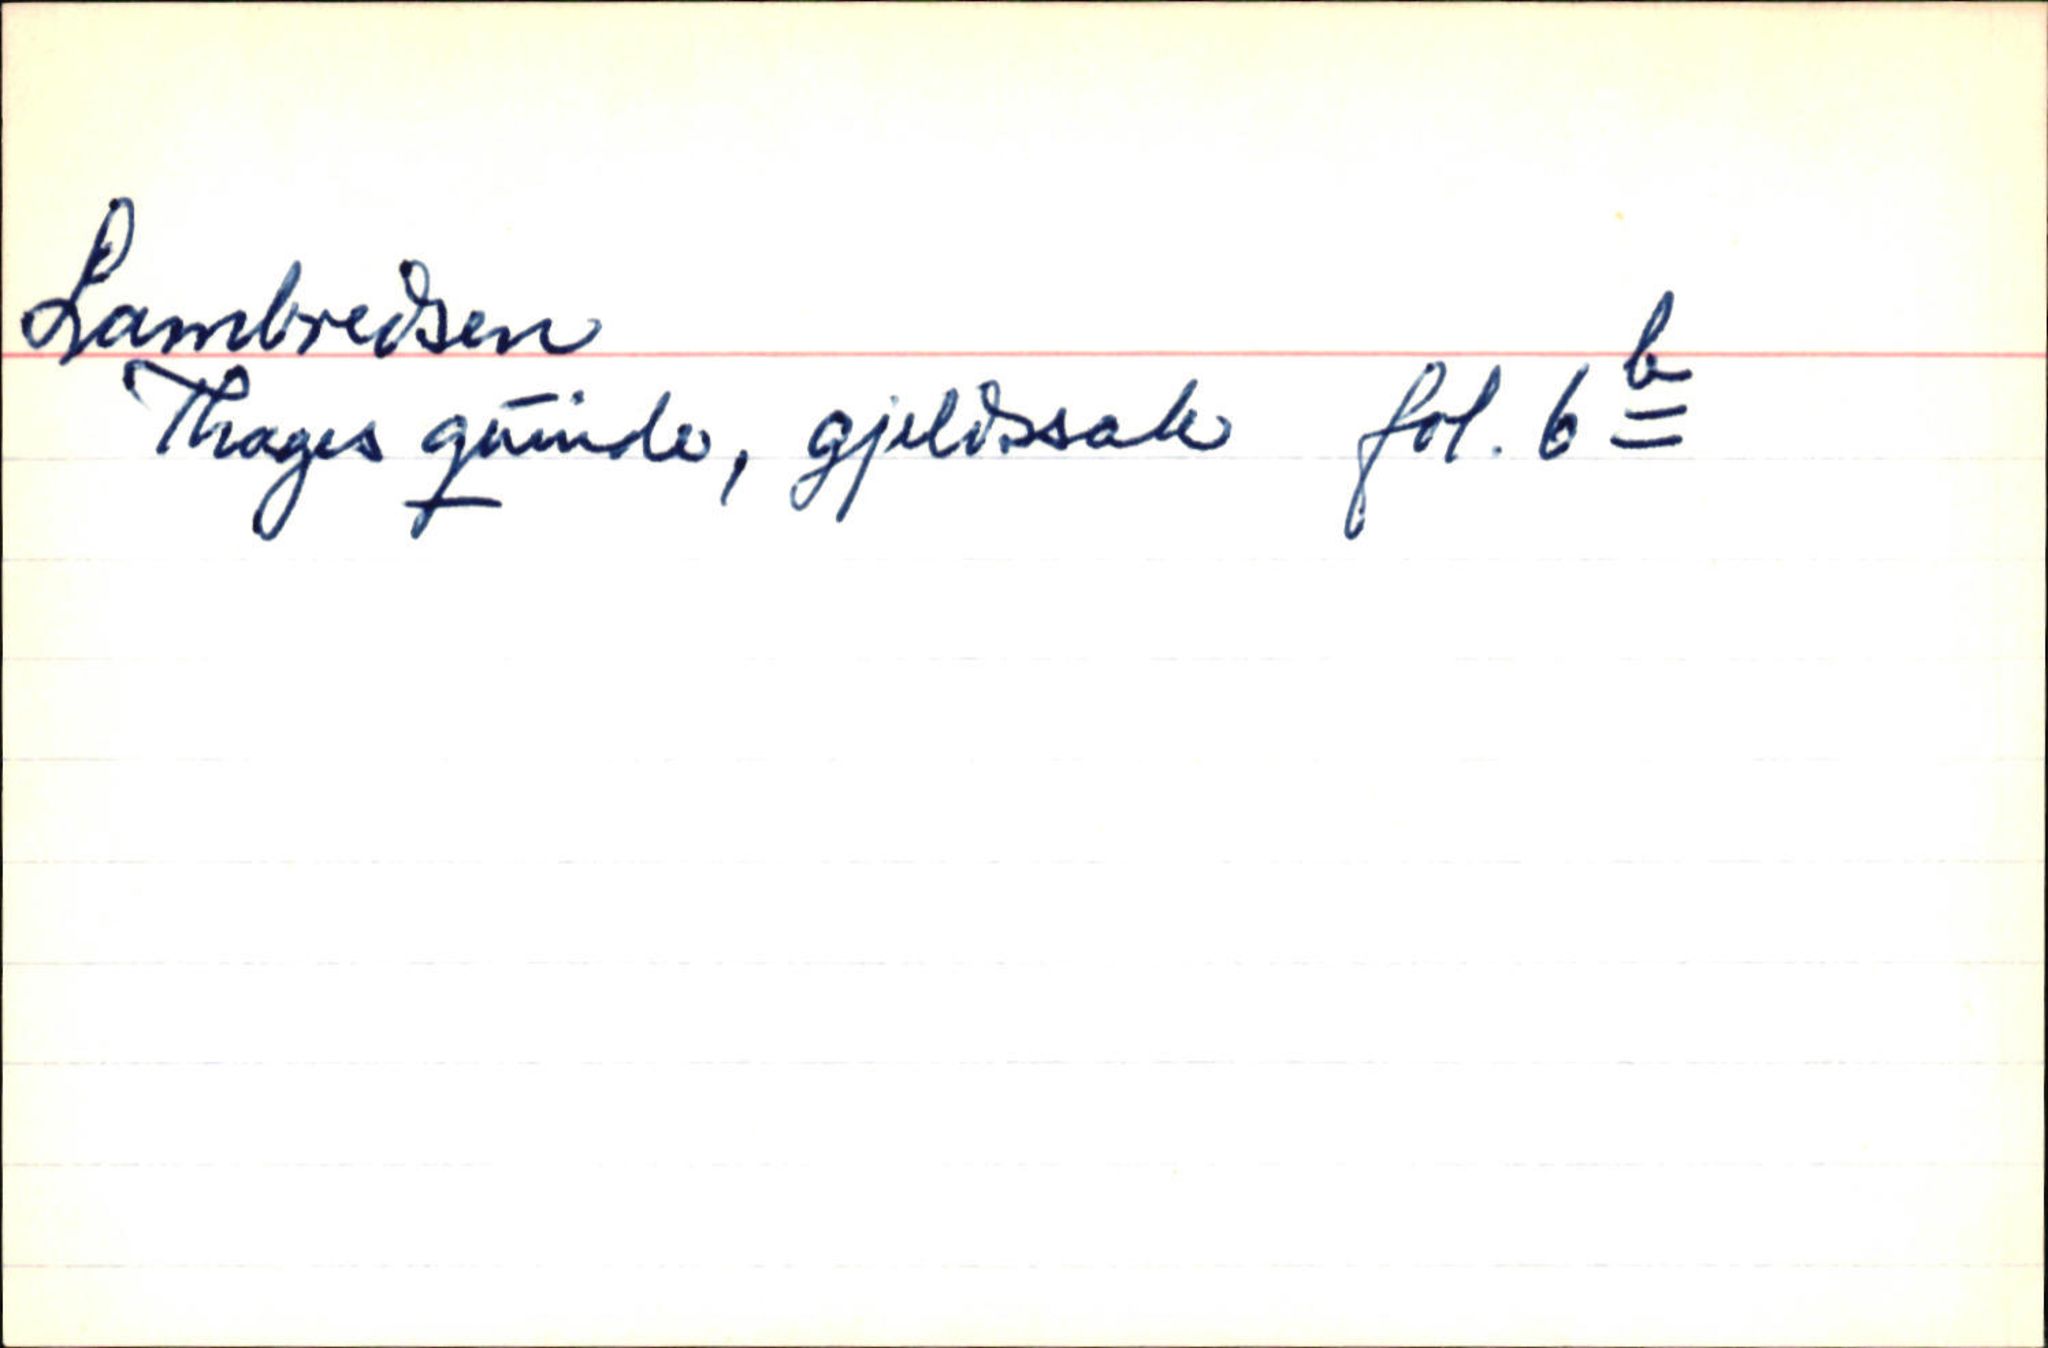 Lambredsen
Thages qūinde, gjeldssak fol. 6 b